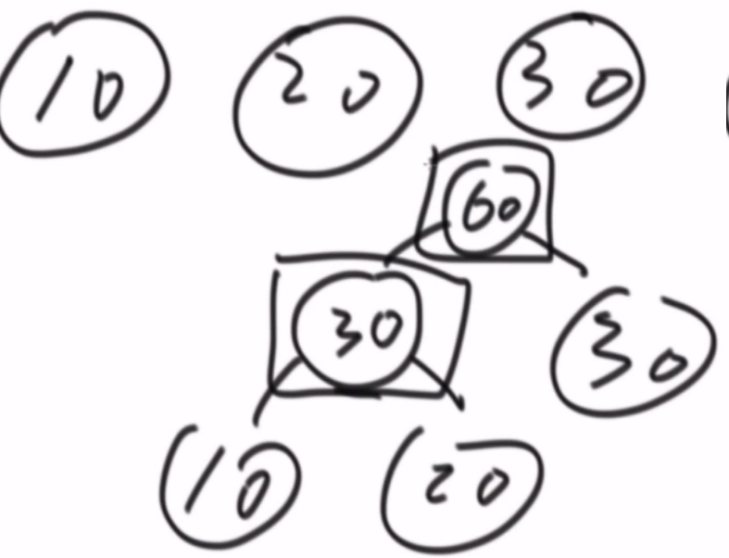 10 20 30
60
30 30
10 20